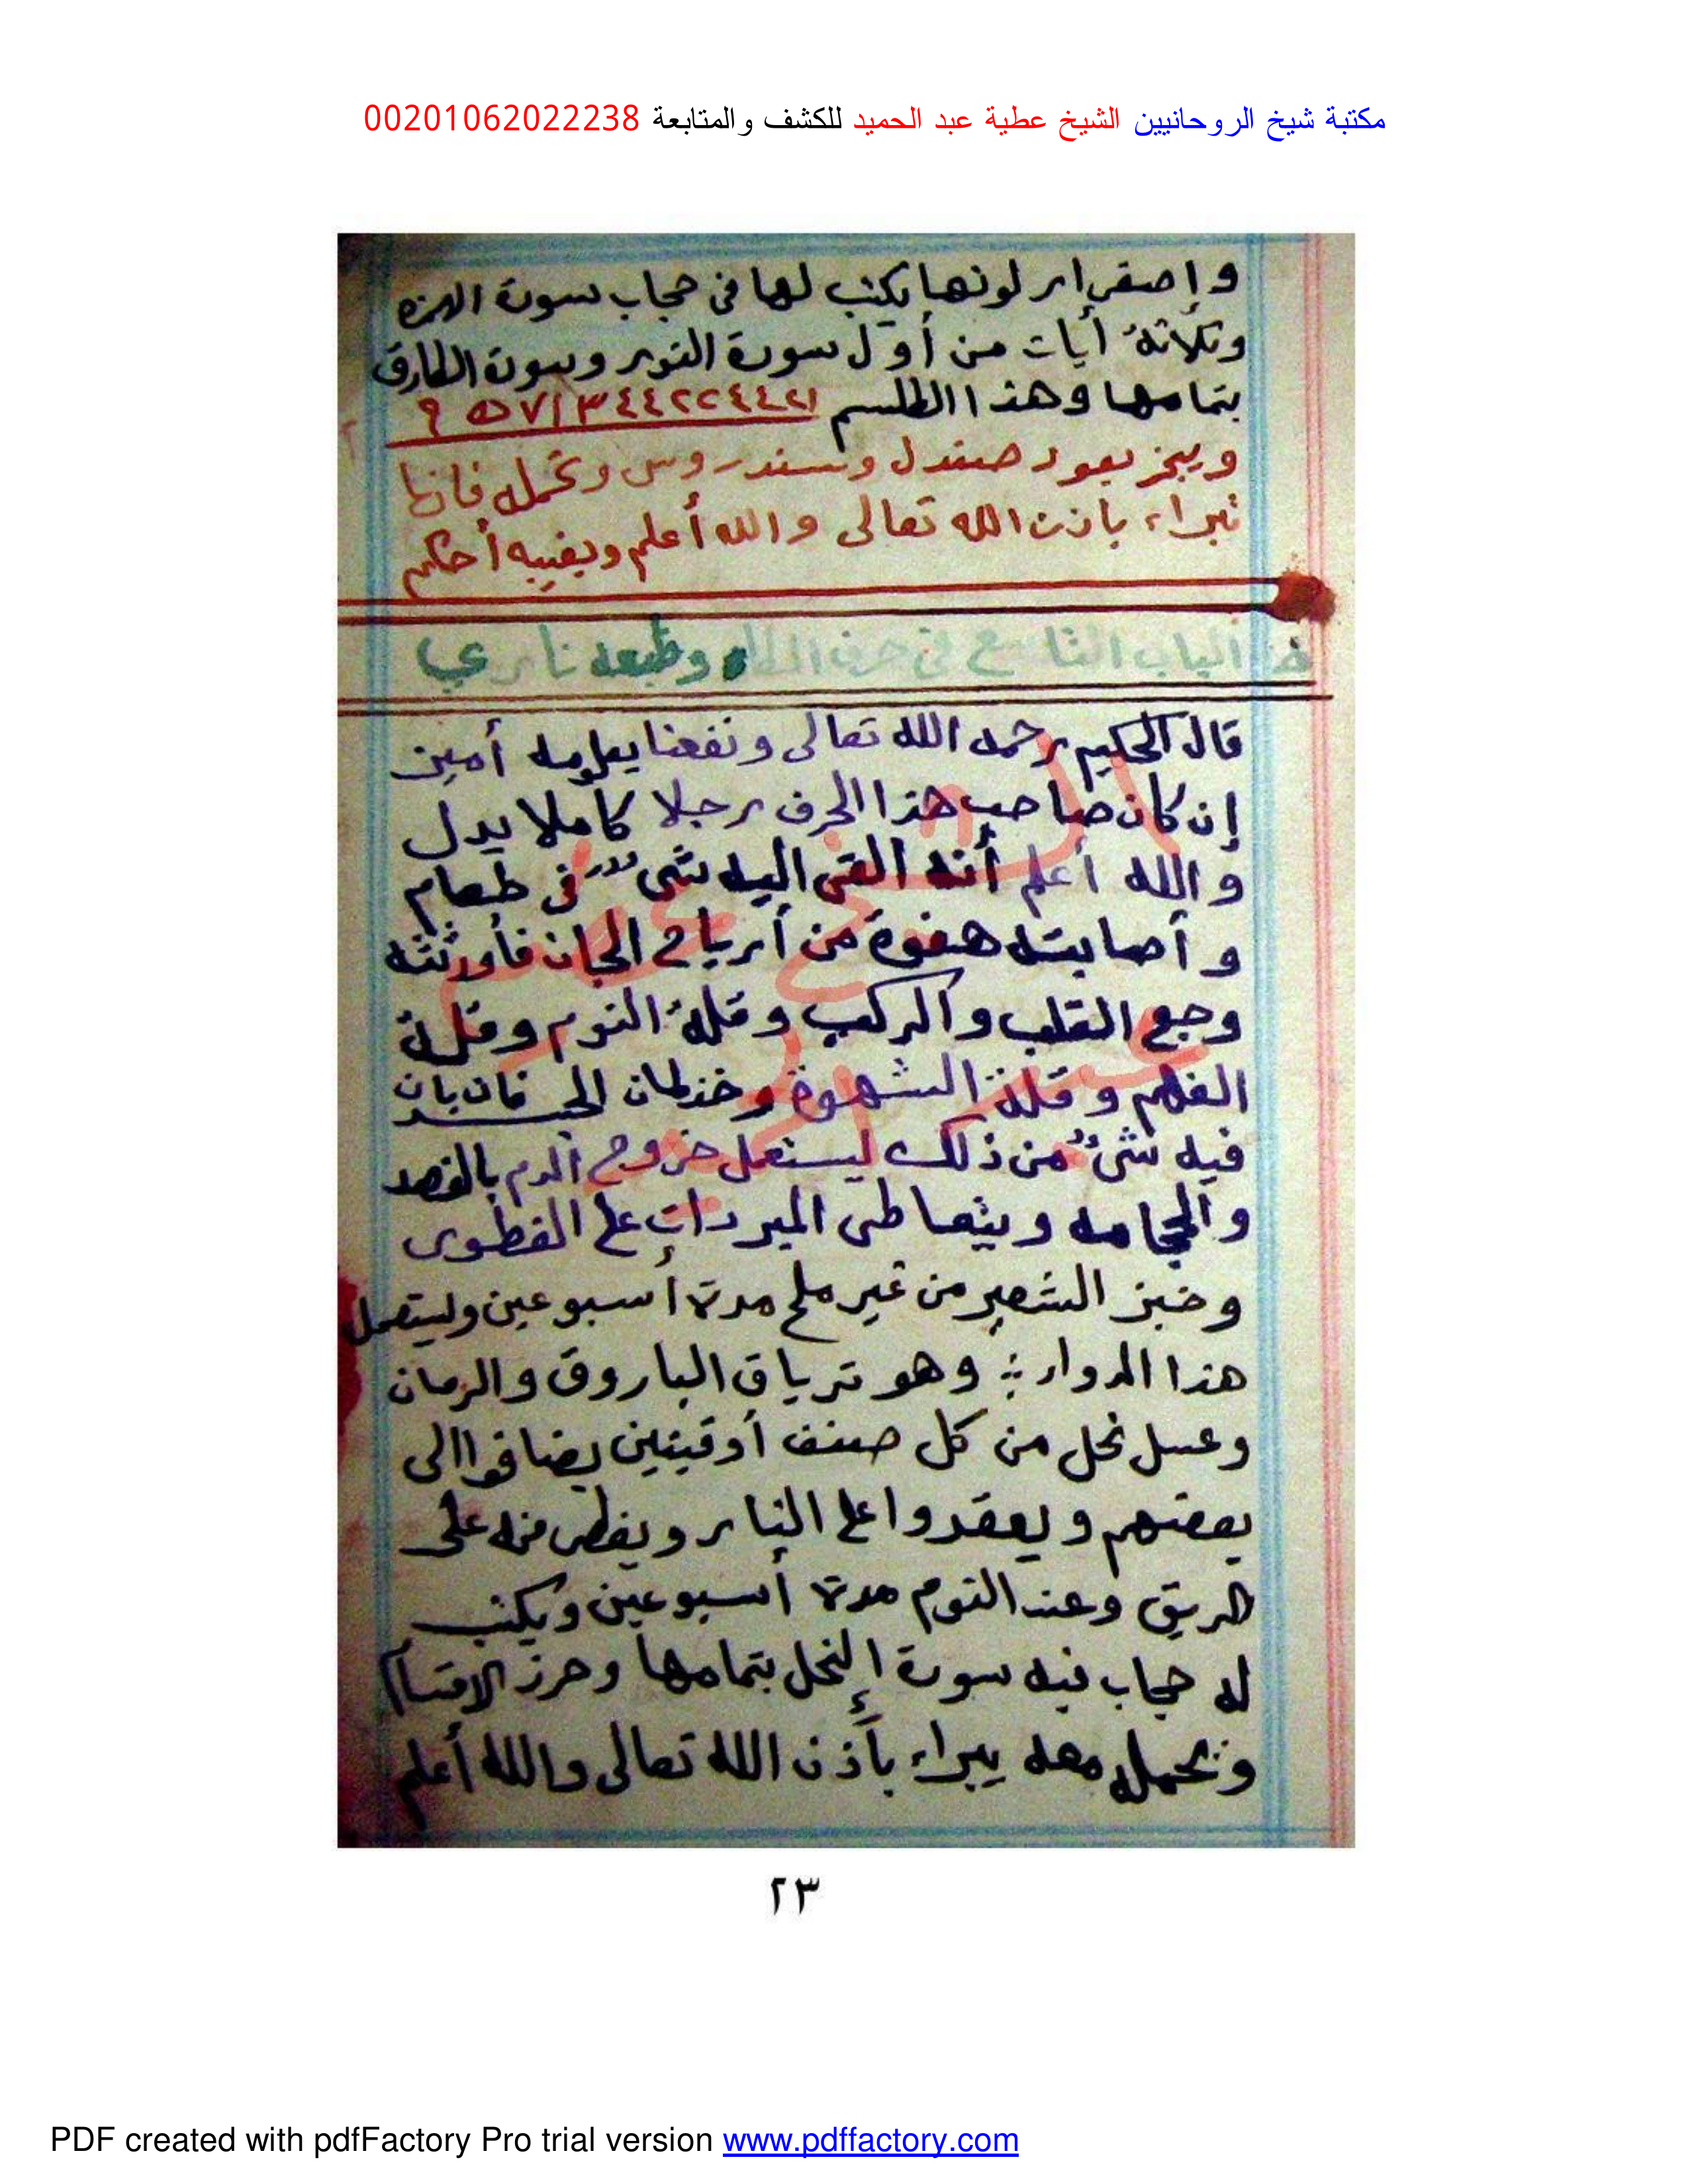 مكتبة شيخ الروحانيين الشيخ عطية عبد الحميد للكشف والمتابعة 00201062022238
وإصفرار لونها يكتب لها فى حجاب سورة الهمزه
وثلاثة أيات من أول سورة النور وسورة الطارق
بتمامها وهذا الطلسم
ويبخر بعود صندل وسندروس وتحمله فانها
تبراء باذن الله تعالى والله أعلم وبغيبه أحكم
ط الباب التاسع فى حرف الطاء وطبعه نارى
قال الحكيم رحمه الله تعالى ونفعنا بعلومه أمين
إن كان صاحب هذا الحرف رجلا كاملا يدل
والله أعلم أنه القى اليه شئ فى طعام
وأصابته هفوة من أرياح الجان فأورثته
وجع القلب والركب وقلة النوم وقلة
الفهم وقلة الشهوة وخذلان الجسد فان بان
فيه شئ من ذلك ليستعمل خروج الدم بالفصد
والحجامه ويتعاطى المبردات على الفطور
وخبز الشعير من غير ملح مدة أسبوعين وليستعمل
هذا الدواء وهو ترياق الباروق والرمان
وعسل نحل من كل صنف أوقيتين يضافوا الى
بعضهم ويعقدوا على النار ويفطر منه على
الريق وعند النوم مدة أسبوعين ويكتب
له حجاب فيه سورة النحل بتمامها وحرز الاقسام
ويحمله معه يبراء بأذن الله تعالى والله أعلم
٢٣
PDF created with pdfFactory Pro trial version www.pdffactory.com